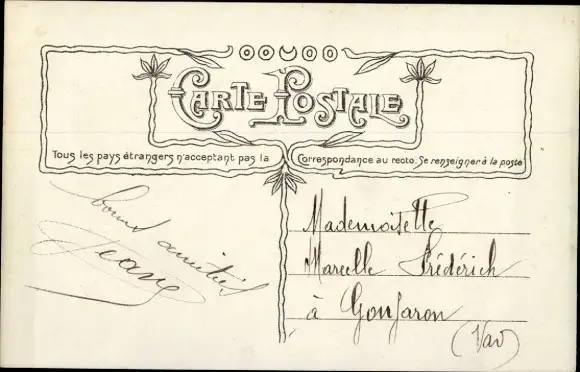 CARTE POSTALE
Tous les pays étrangers n'acceptant pas la Correspondance au recto. Se renseigner à la poste
bonnes amitiés
Jeanne
Mademoiselle
Marcelle Frédérich
à Gonfaron
(Var)